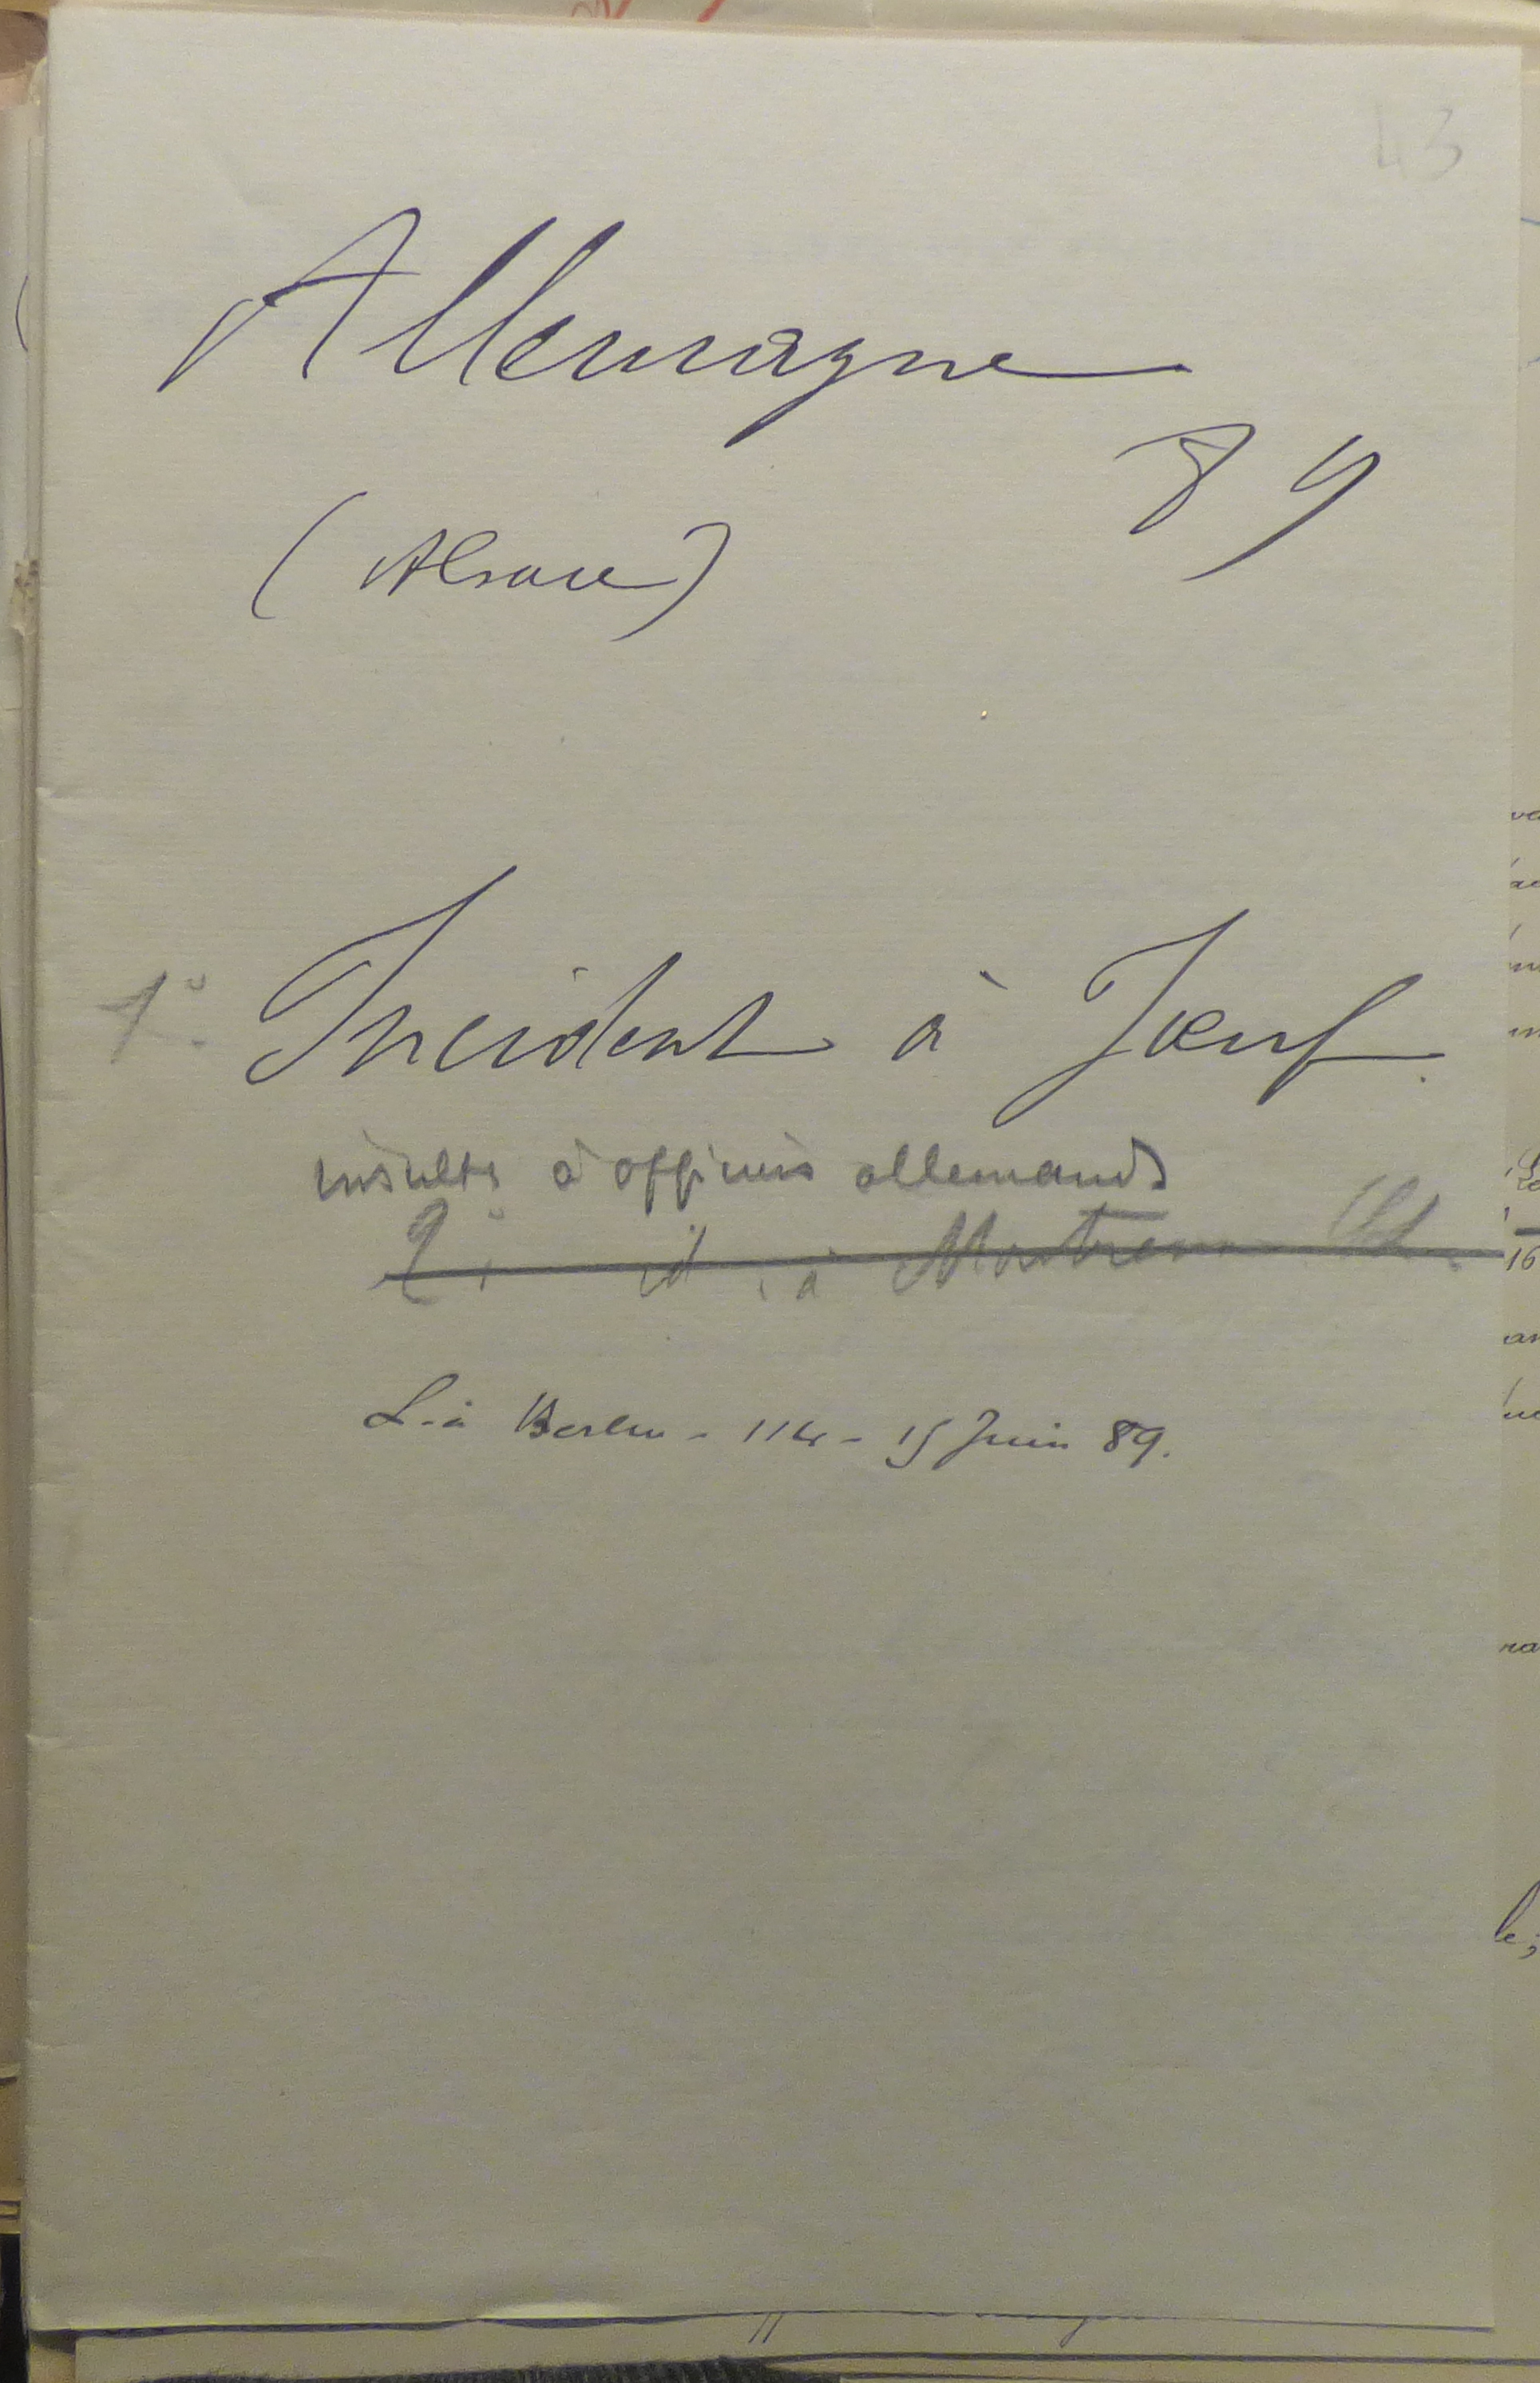 43
Allemagne
89
(Alsace)
1° Incident à Jœuf.
insulte à officiers allemands
2° id. à Montreux
L. à Berlin - 114 - 15 Juin 89.